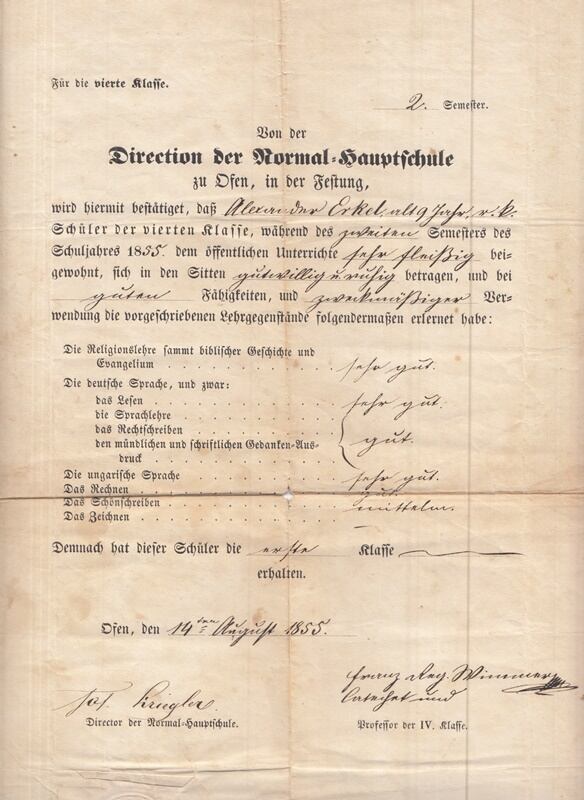 Für die vierte Klasse.
2. Semester.
Von der
Direction der Normal-Hauptschule
zu Ofen, in der Festung,
wird hiermit bestätiget, daß Alexander Erkel, alt 9 Jahr, r. k.
Schüler der vierten Klasse, während des zweiten Semesters des
Schuljahres 1855 dem öffentlichen Unterrichte sehr fleißig bei-
gewohnt, sich in den Sitten gutwillig u. ruhig betragen, und bei
guten Fähigkeiten, und zweckmäßiger Ver-
wendung die vorgeschriebenen Lehrgegenstände folgendermaßen erlernet habe:
Die Religionslehre sammt biblischer Geschichte und
Evangelium . . . . . . . . . . . sehr gut.
Die deutsche Sprache, und zwar:
das Lesen . . . . . . . . . . . sehr gut.
die Sprachlehre . . . . . . . . . .
das Rechtschreiben . . . . . . . . . gut.
den mündlichen und schriftlichen Gedanken-Aus-
druck . . . . . . . . . . . .
Die ungarische Sprache . . . . . . . . . sehr gut.
Das Rechnen . . . . . . . . . . . gut.
Das Schönschreiben . . . . . . . . . mittelm.
Das Zeichnen . . . . . . . . . . .
Demnach hat dieser Schüler die erste Klasse
erhalten.
Ofen, den 14ten August 1855.
Jos. Kriegler.
Director der Normal-Hauptschule.
Franz Reg. Wimmer
Catechet und
Professor der IV. Klasse.